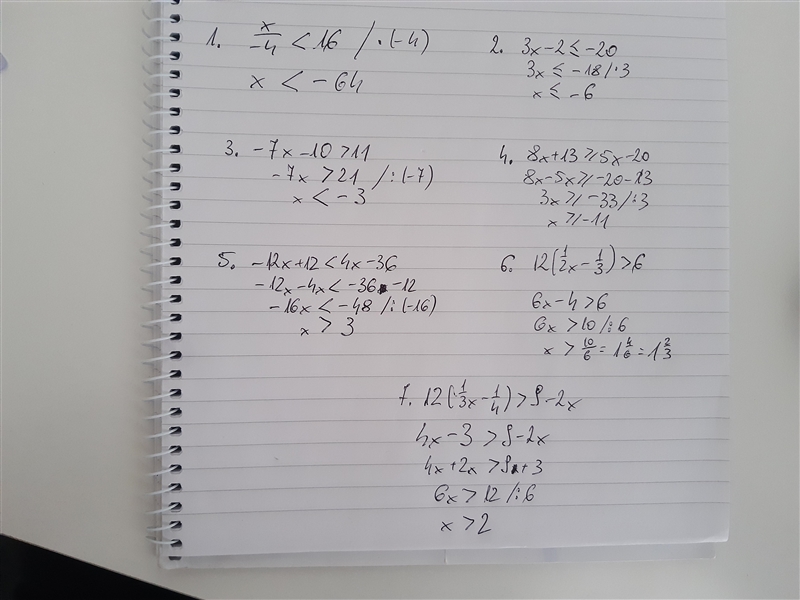 1. x/-4 < 16 / · (-4)
x < -64
2. 3x-2 ≤ -20
3x ≤ -18 /:3
x ≤ -6
3. -7x -10 > 11
-7x > 21 /:(-7)
x < -3
4. 8x+13 ≥ 5x-20
8x-5x ≥ -20-13
3x ≥ -33 /:3
x ≥ -11
5. -12x+12 < 4x-36
-12x-4x < -36 -12
-16x < -48 /:(-16)
x > 3
6. 12(1/2x - 1/3) > 6
6x-4 > 6
6x > 10 /:6
x > 10/6 = 1 4/6 = 1 2/3
7. 12(1/3x - 1/4) > 9-2x
4x-3 > 9-2x
4x+2x > 9+3
6x > 12 /:6
x > 2